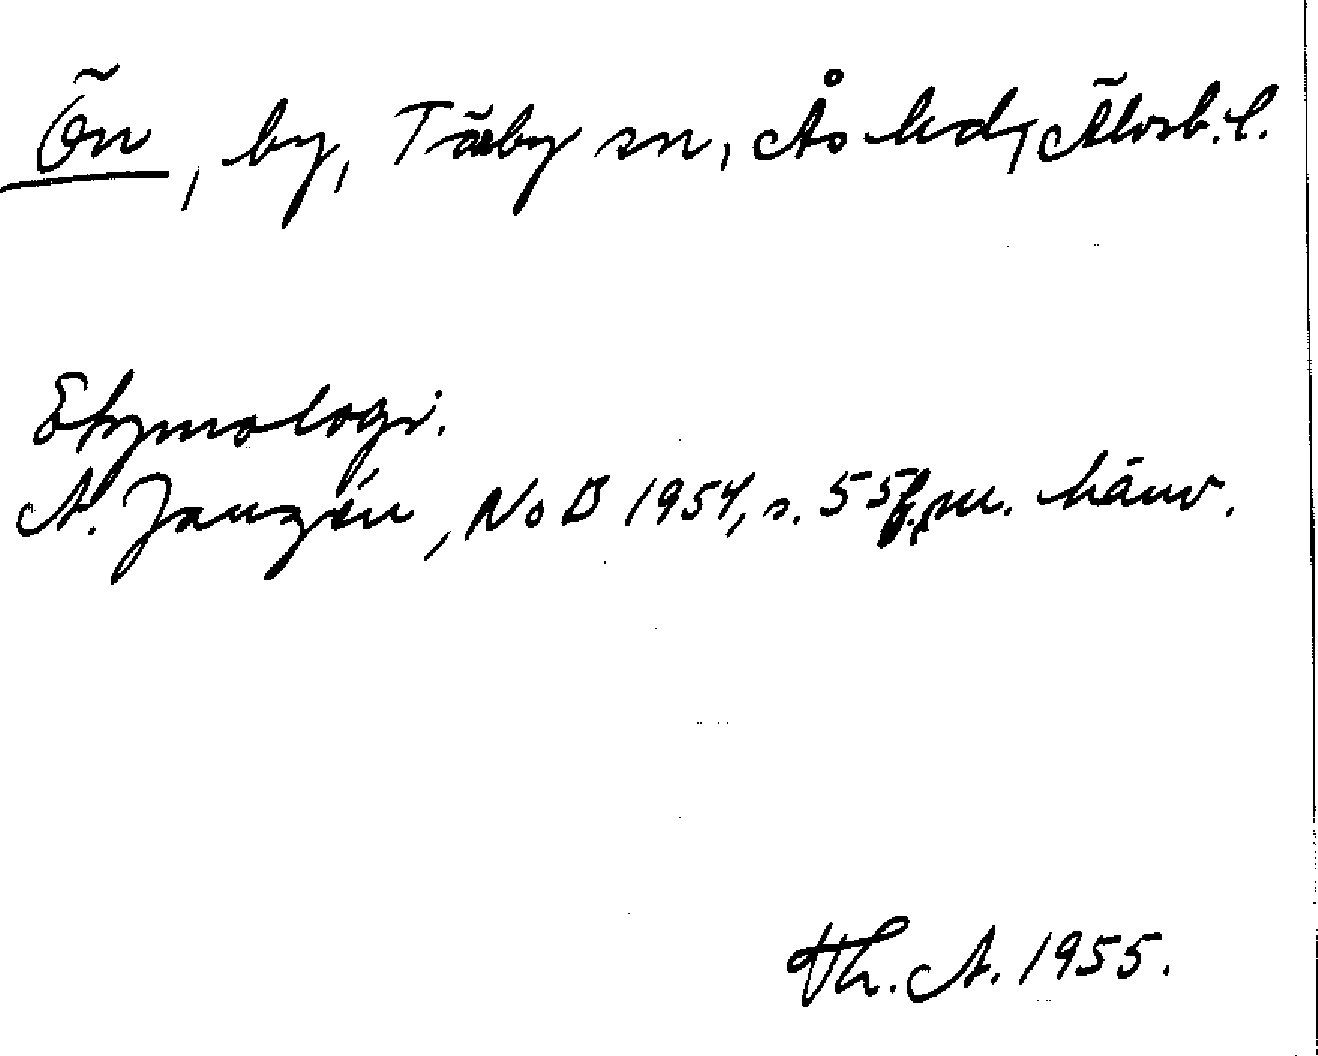 Ön, by, Tärby sn, Ås hd, Älvsb. l.
Etymologi.
A. Janzén, NoB 1954, s. 55f., m. hänv.
Th. A. 1955.